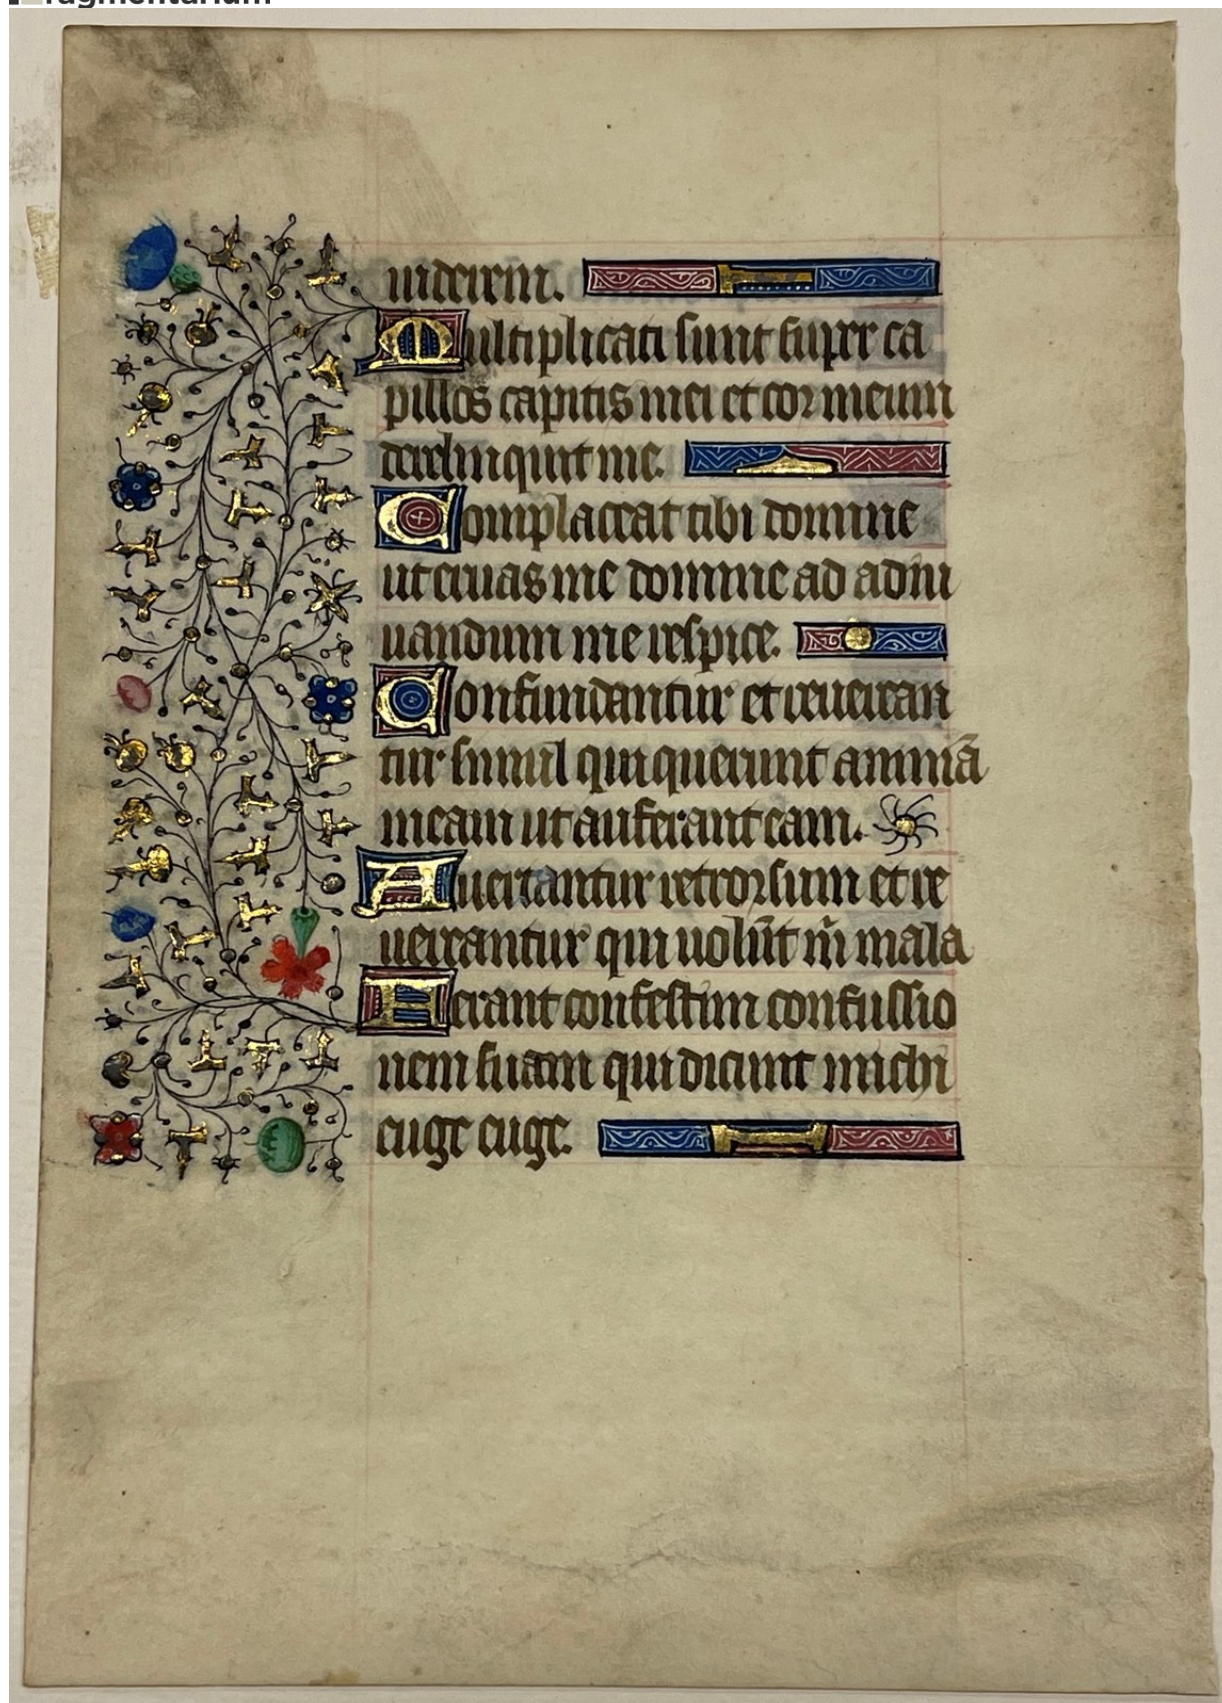 fragmentarium
uiderem.
Multiplicati sunt super ca
pillos capitis mei et cor meum
derelinquit me.
Complaceat tibi domine
ut eruas me domine ad adiu
uandum me respice.
Confundantur et reueran
tur simul qui querunt animā
meam ut auferant eam.
Auertantur retrorsum et re
uerantur qui uolūt m̄ mala
Ferant confestim confussio
nem suam qui dicunt michi
euge euge.